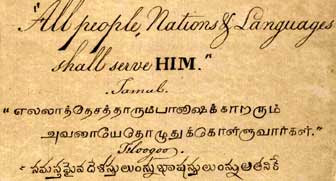 "All people, Nations & Languages
shall serve HIM."
Tamul.
"எல்லாத்தேசத்தாரும்பாஷைக்காறரும்
அவரையேதொழுதுக்கொள்ளுவார்கள்."
Teloogoo.